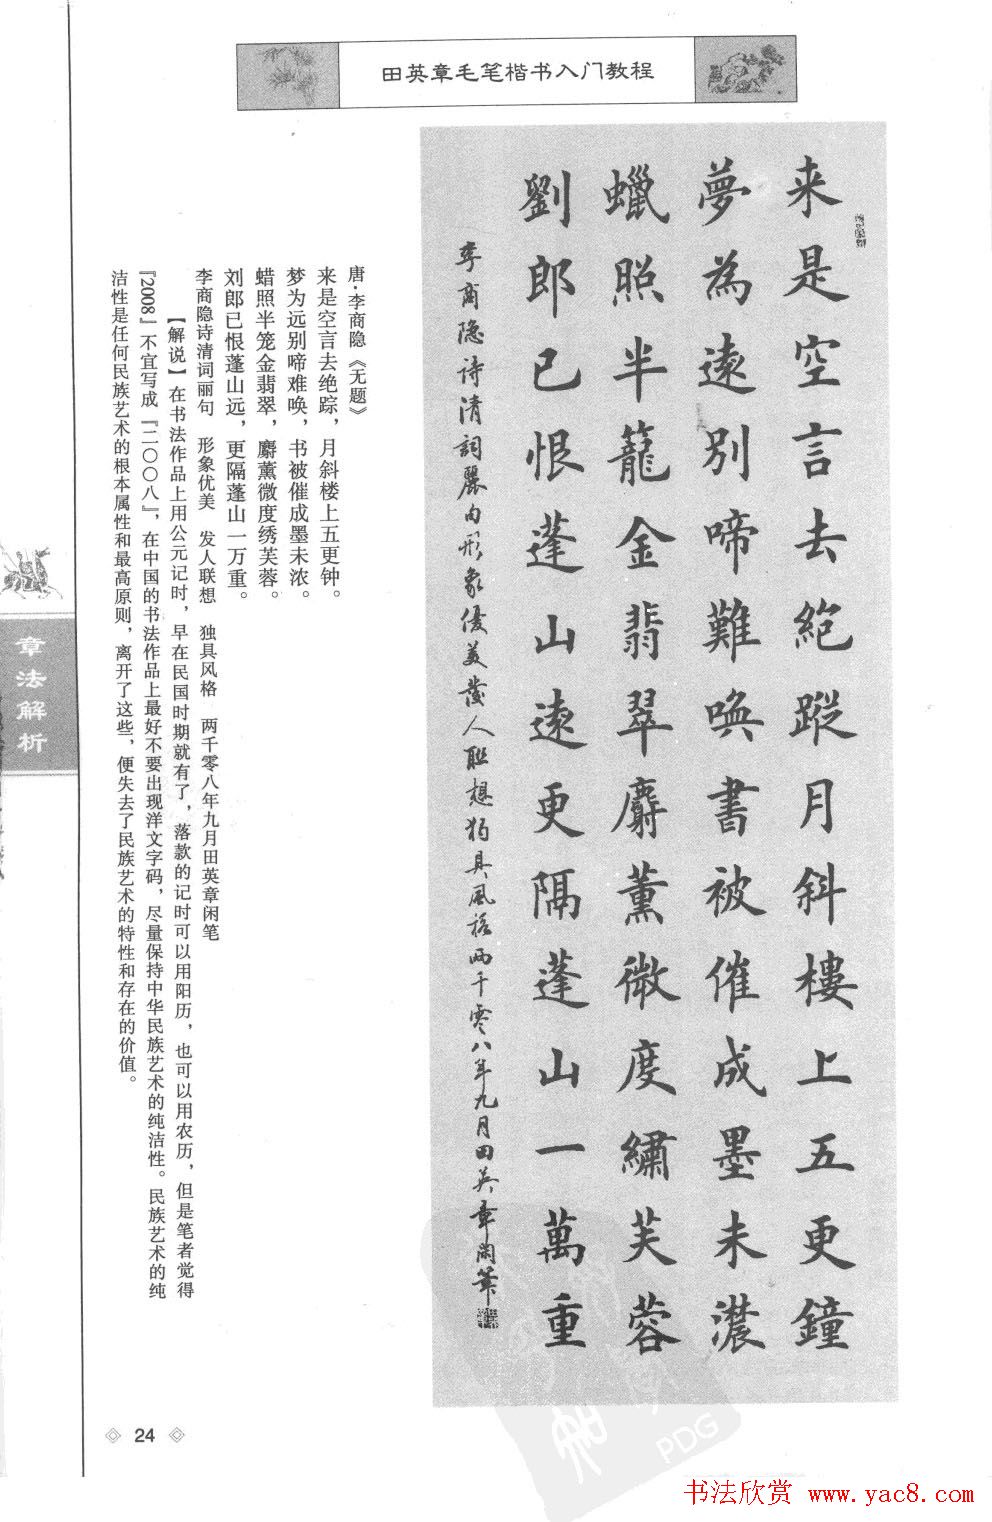 田英章毛笔楷书入门教程
来是空言去绝蹤月斜樓上五更鐘
夢為遠别啼難唤書被催成墨未濃
蠟照半籠金翡翠麝薰微度繡芙蓉
劉郎已恨蓬山遠更隔蓬山一萬重
李商隐诗清詞麗句形象优美發人联想独具風格两千零八年九月田英章闲筆
唐·李商隐《无题》
来是空言去绝踪，月斜楼上五更钟。
梦为远别啼难唤，书被催成墨未浓。
蜡照半笼金翡翠，麝薰微度绣芙蓉。
刘郎已恨蓬山远，更隔蓬山一万重。
李商隐诗清词丽句 形象优美 发人联想 独具风格 两千零八年九月田英章闲笔
【解说】在书法作品上用公元记时，早在民国时期就有了，落款的记时可以用阳历，也可以用农历，但是笔者觉得
『2008』不宜写成『二〇〇八』，在中国的书法作品上最好不要出现洋文字码，尽量保持中华民族艺术的纯洁性。民族艺术的纯
洁性是任何民族艺术的根本属性和最高原则，离开了这些，便失去了民族艺术的特性和存在的价值。
章法解析
24
PDG
书法欣赏 www.yac8.com